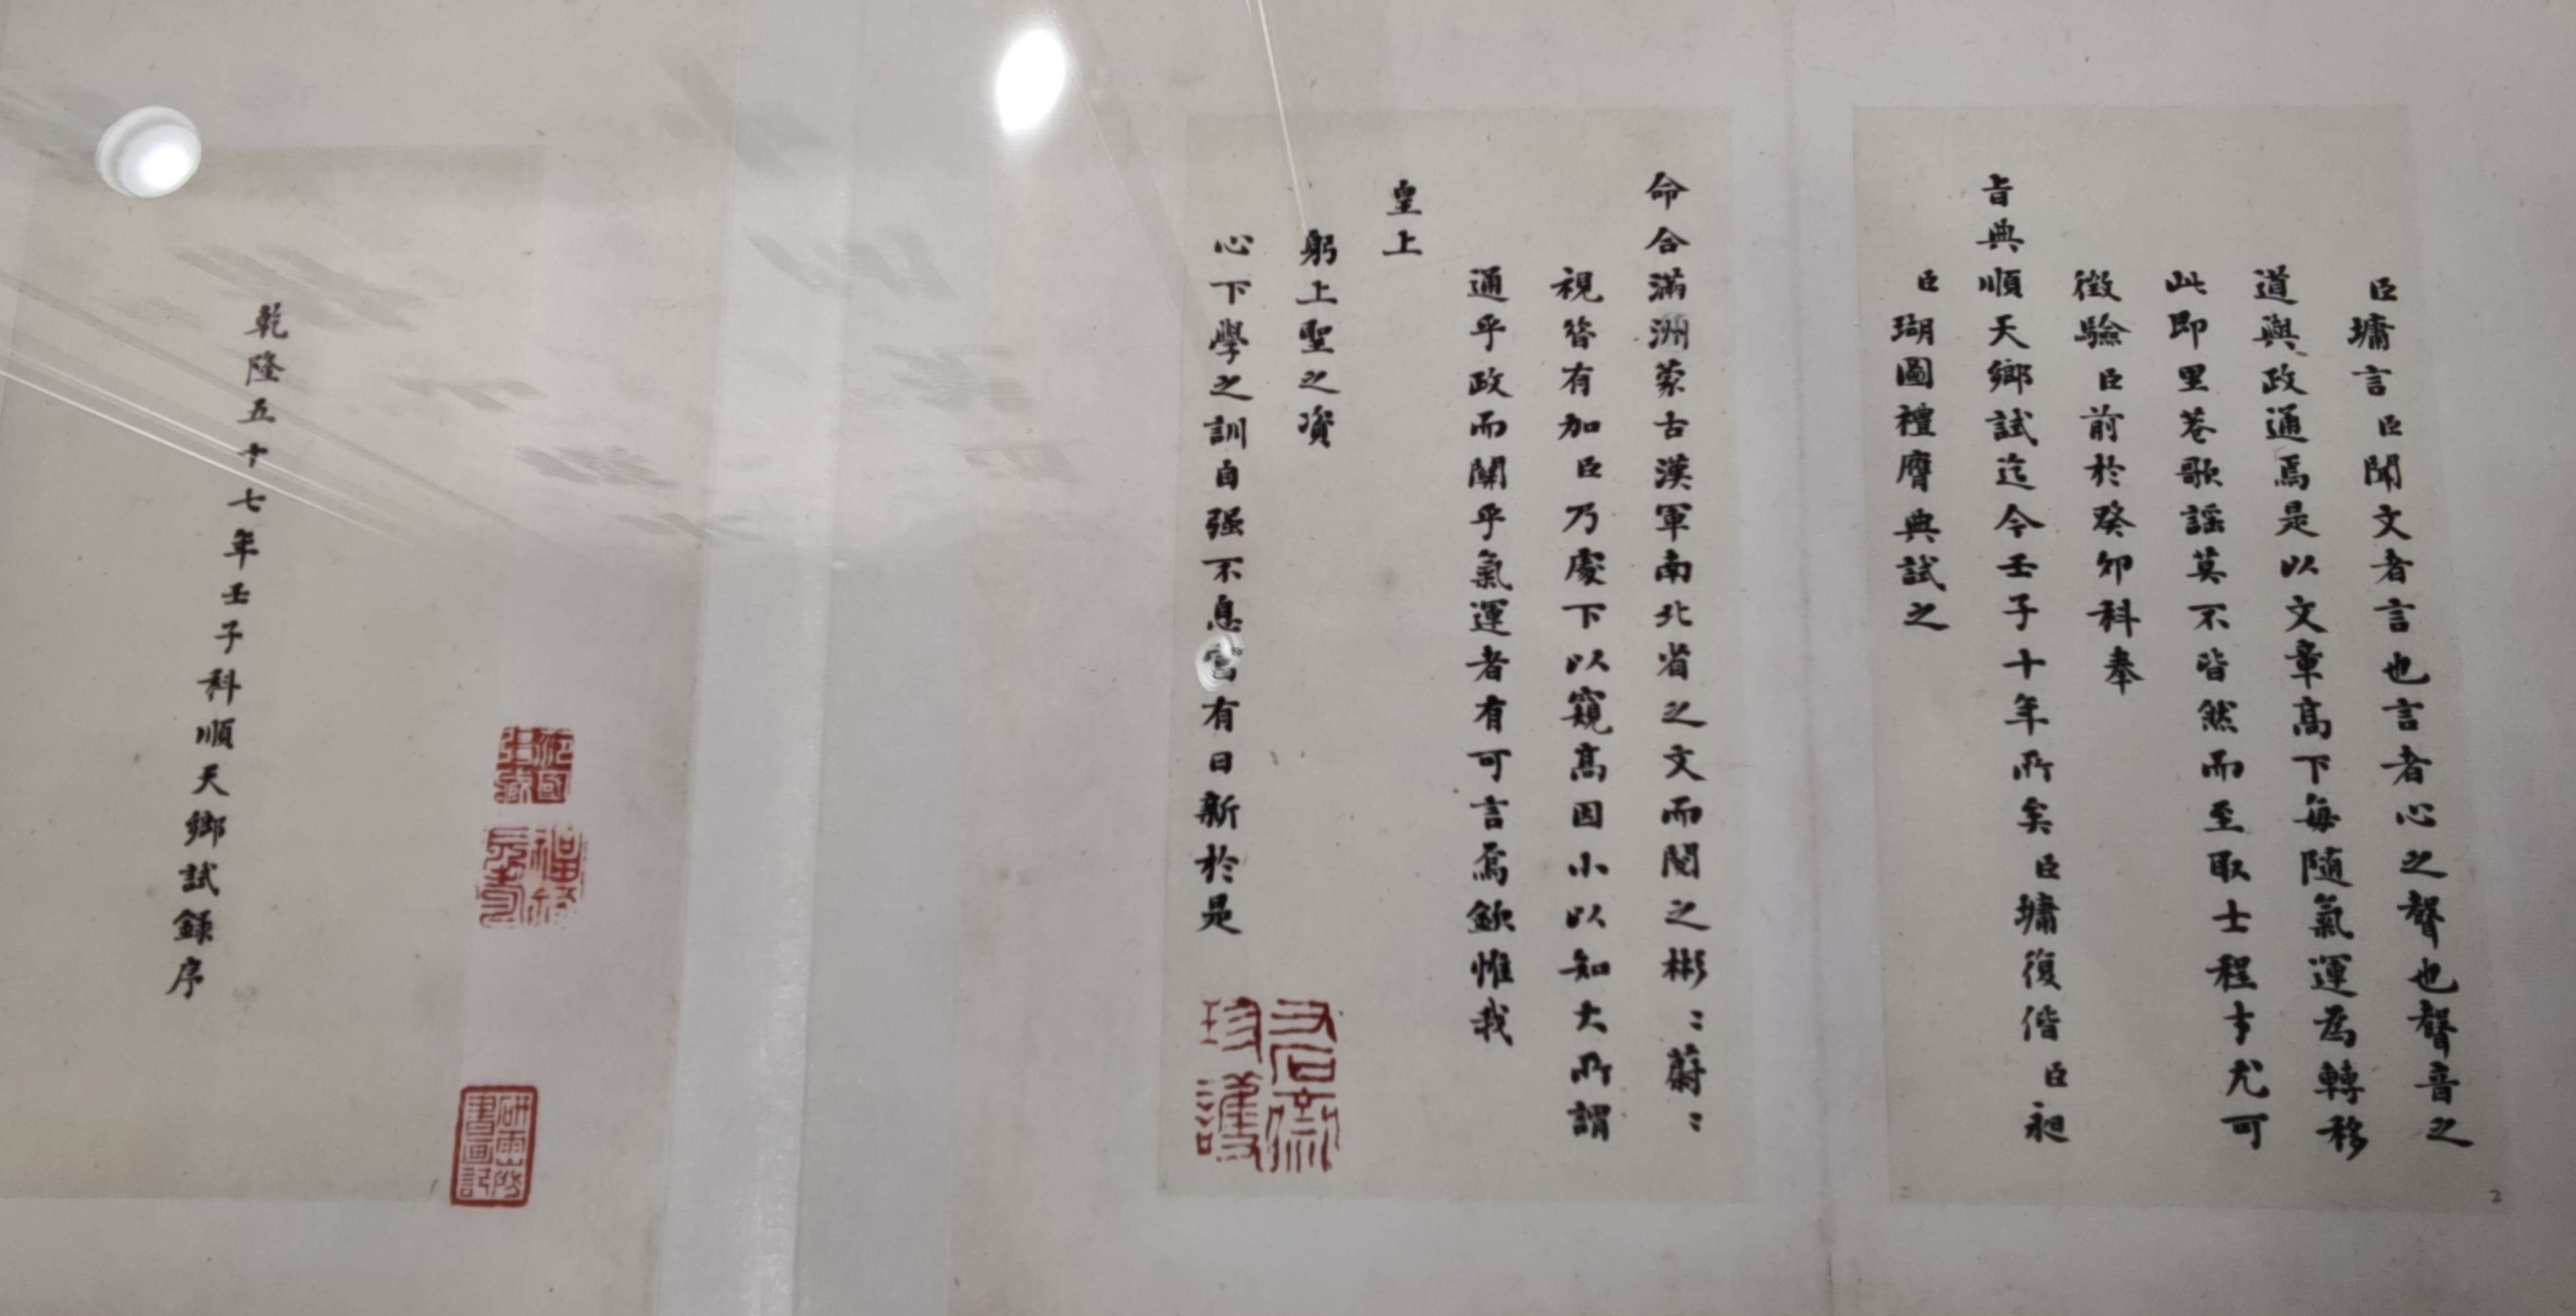 臣墉言臣聞文者言也言者心之聲也聲音之
道與政通焉是以文章高下每隨氣運為轉移
此即里巷歌謡莫不皆然而至取士程才尤可
徵驗臣前於癸卯科奉
旨典順天鄉試迄今壬子十年所矣臣墉復偕臣昶
臣瑚圖禮膺典試之
命合滿洲蒙古漢軍南北省之文而閱之彬〻蔚〻
視昔有加臣乃處下以窺高因小以知大所謂
通乎政而關乎氣運者有可言焉欽惟我
皇上
躬上聖之資
心下學之訓自强不息富有日新於是
珍護
乾隆五十七年壬子科順天鄉試錄序